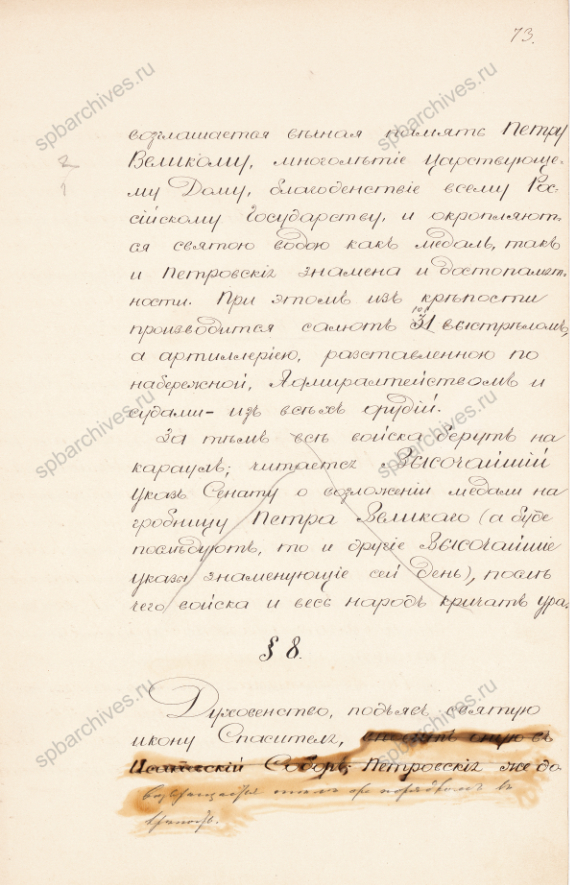 73.
возглашается вѣчная память Петру
Великому, многолѣтіе Царствующе-
му Дому, благоденствіе всему Рос-
сійскому Государству, и окропляют-
ся святою водою какъ медаль, такъ
и Петровскія знамена и достопамят-
ности. При этомъ изъ крѣпости
производится салютъ 31 выстрѣломъ,
а артиллеріею, разставленною по
набережной, Адмиралтействомъ и
судами – изъ всѣхъ орудій.
За тѣмъ всѣ войска берутъ на
караулъ; читается Высочайшій
указъ Сенату о возложеніи медали на
гробницу Петра Великаго (а буде
послѣдуютъ, то и другіе Высочайшіе
указы, знаменующіе сей день), послѣ
чего войска и весь народъ кричатъ ура.
§ 8.
Духовенство, подъявъ святую
икону Спасителя,
Соборъ; Петровскія же до
возвращается тѣмъ же порядкомъ въ
spbarchives.ru
spbarchives.ru
spbarchives.ru
spbarchives.ru
spbarchives.ru
spbarchives.ru